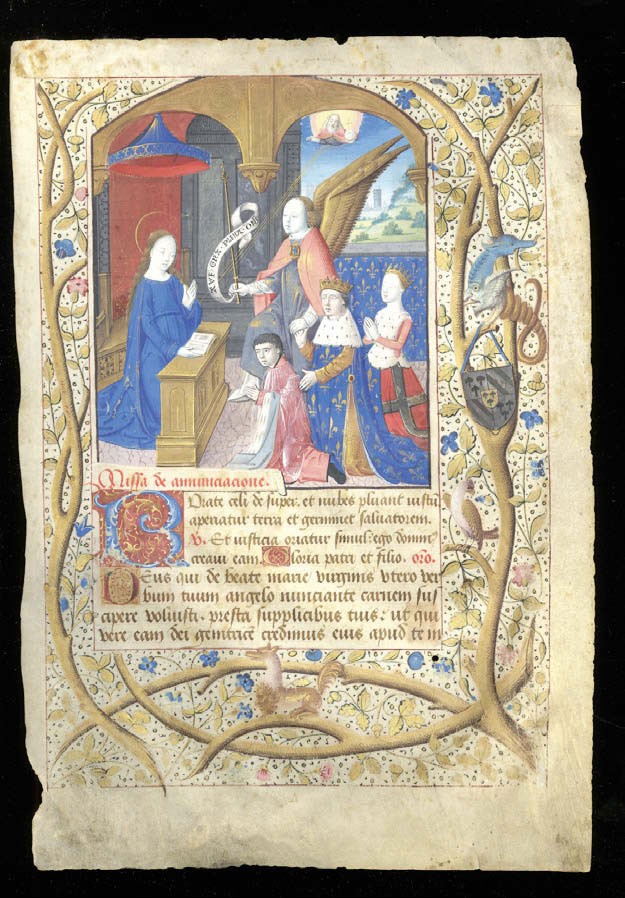 Missa de annunciacione.
Rorate celi de super. et nubes pluant iustū
aperiatur terra et germinet saluatorem.
V. Et iusticia oriatur simul: ego domin̄
creaui eam. Gloria patri et filio. oro.
Deus qui de beate marie virginis vtero ver
bum tuum angelo nunciante carnem sus
cipere voluisti. presta supplicibus tuis: ut qui
vere eam dei genitricē credimus eius apud te in